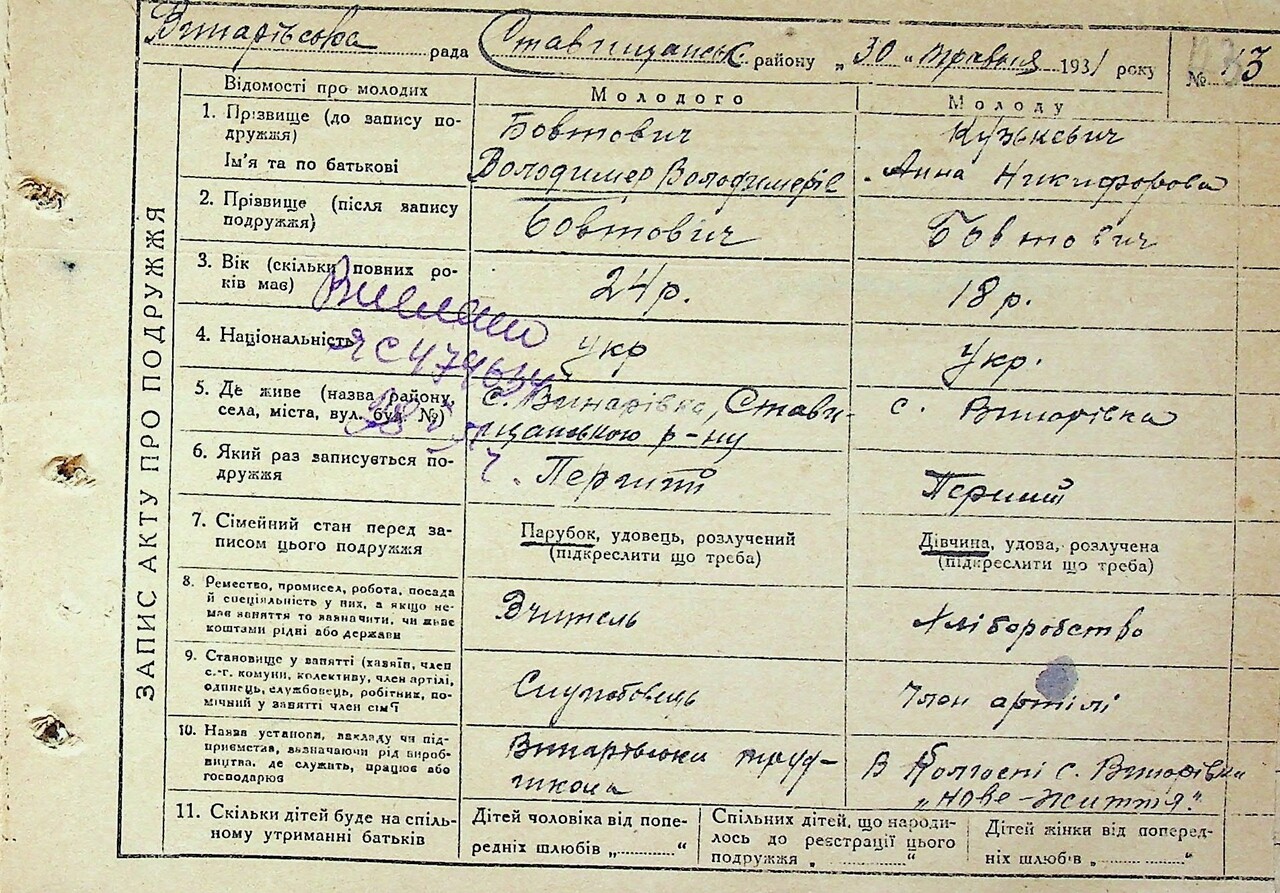 Винарівська рада Ставищанськ. району „30" травня 1931 року
№ 13
ЗАПИС АКТУ ПРО ПОДРУЖЖЯ
Відомості про молодих
Молодого
Молоду
1. Прізвище (до запису по-
дружжя)
Ім'я та по батькові
Бовтович
Володимер Володимерів
Кузькевич
Анна Никифорова
2. Прізвище (після запису
подружжя)
Бовтович
Бовтович
3. Вік (скільки повних ро-
ків має)
24 р.
18 р.
4. Національність
Укр
Укр.
5. Де живе (назва району,
села, міста, вул. буд. №)
с. Винарівка, Стави-
щанського р-ну
с. Винарівка
6. Який раз записується по-
дружжя
Перший
Перший
7. Сімейний стан перед за-
писом цього подружжя
Парубок, удовець, розлучений
(підкреслити що треба)
Дівчина, удова, розлучена
(підкреслити що треба)
8. Ремество, промисел, робота, посада
й спеціяльність у них, а якщо не-
має заняття то зазначити, чи живе
коштами рідні або держави
Вчитель
Хліборобство
9. Становище у занятті (хазяїн, член
с.-г. комуни, колективу, член артілі,
одинець, службовець, робітник, по-
мічний у занятті член сім'ї
Службовець
Член артілі
10. Назва установи, закладу чи під-
приємства, визначаючи рід вироб-
ництва, де служить, працює або
господарює
Винарівська труд-
школа
В Колгоспі с. Винарівка
„Нове-життя."
11. Скільки дітей буде на спіль-
ному утриманні батьків
Дітей чоловіка від попе-
редніх шлюбів „............"
Спільних дітей, що народи-
лось до реєстрації цього
подружжя „............"
Дітей жінки від поперед-
ніх шлюбів „............"